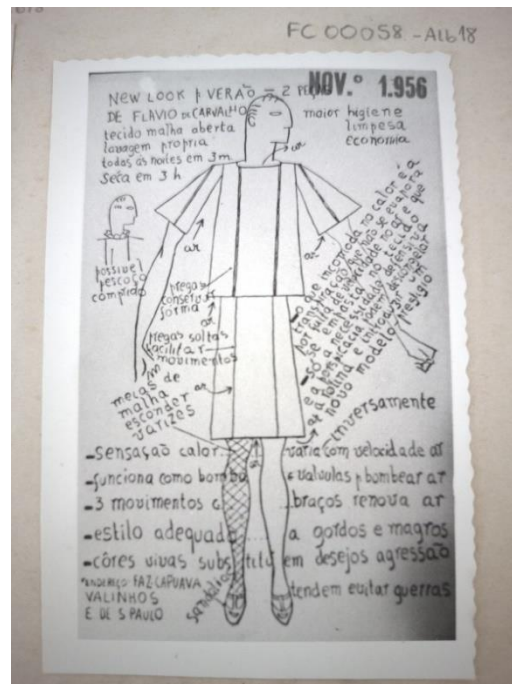 FC 00058 - Alb 18
NOV.º 1.956
NEW LOOK p VERÃO = 2 PEÇAS
DE FLAVIO DE CARVALHO
tecido malha aberta
lavagem propria
todas as noites em 3m
Seca em 3 h
maior higiene
limpesa
economia
ar
possivel
pescoço
comprido
ar
ar
pregas
conserva
forma
ar
pregas soltas
facilitar
movimentos
ar
meias de
malha
esconder
varizes
o que incomoda no calor é a
transpiração que não se evapora
por falta de velocidade no ar e que
se empasta no tecido
só a necessidade defensiva
e a perspicacia podem desmantelar
a rotina e introduzir um
novo modelo prestigio
ar
ar
-sensação calor varia com velocidade ar
inversamente
-funciona como bomba e valvulas p bombear ar
-3 movimentos braços renova ar
-estilo adequado a gordos e magros
-côres vivas substituem desejos agressão
tendem evitar guerras
ENDEREÇO: FAZ. CAPUAVA
VALINHOS
E. DE S PAULO
sandalias